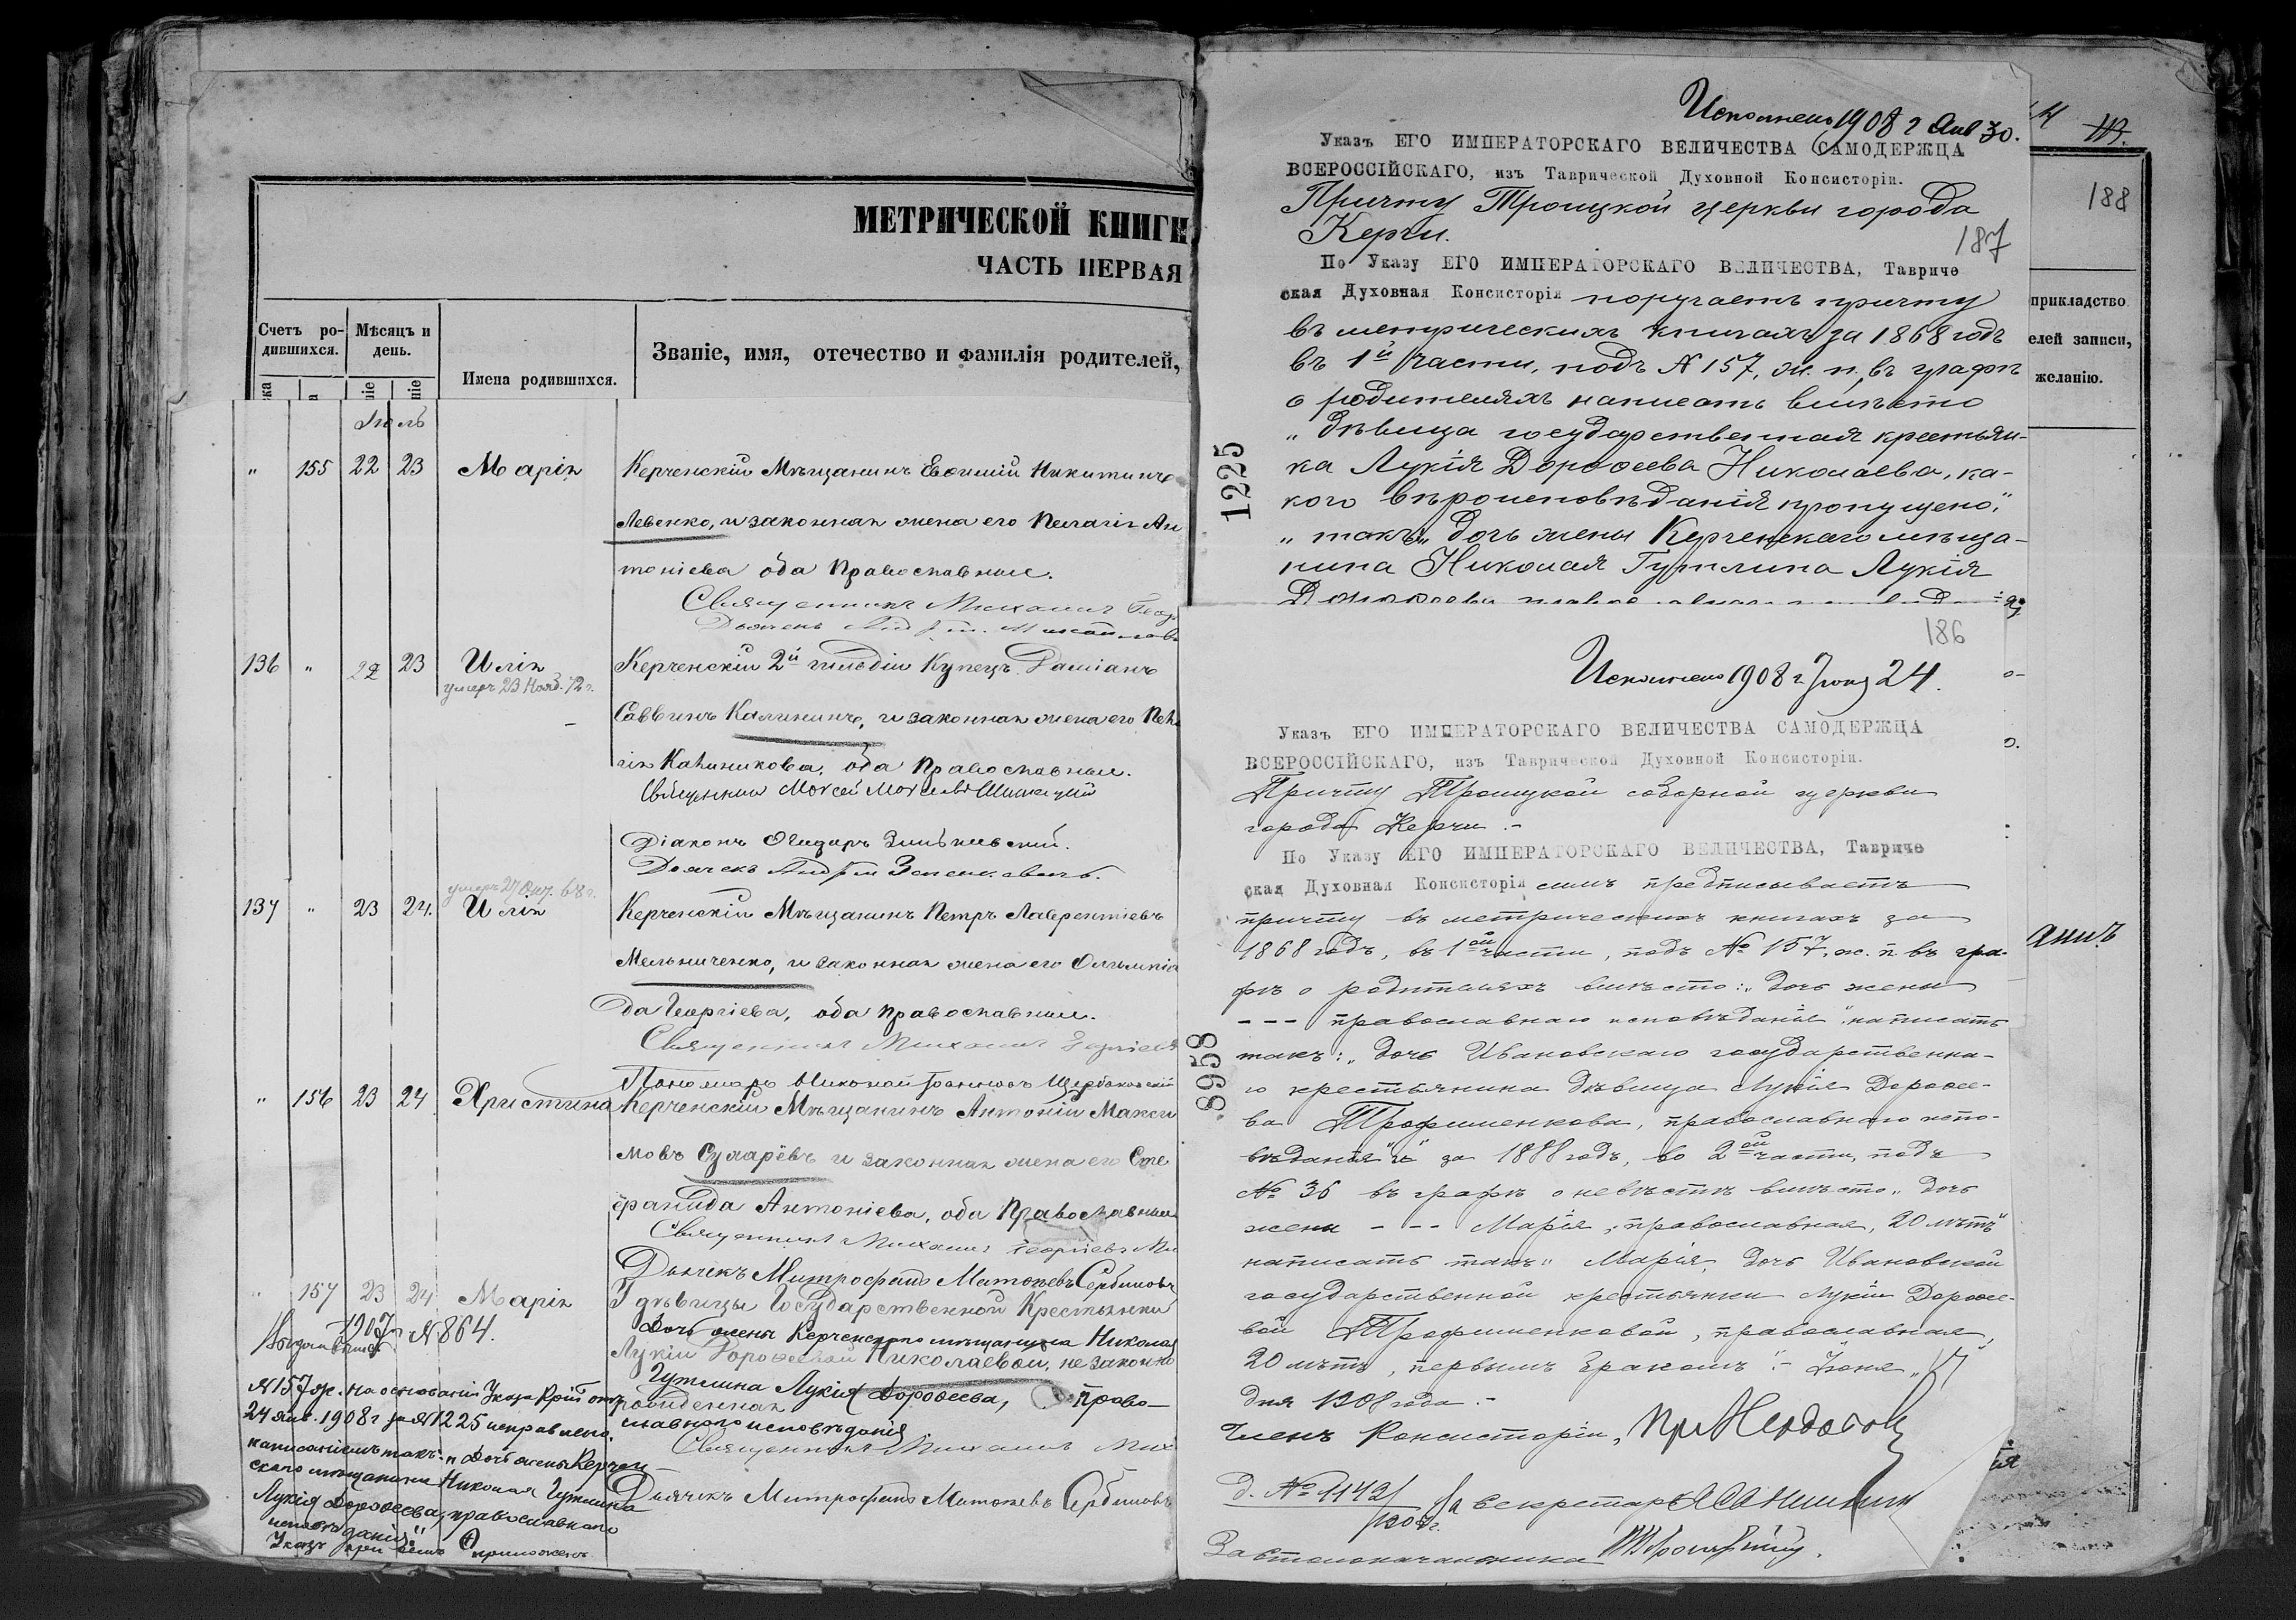 МЕТРИЧЕСКОЙ КНИГИ
ЧАСТЬ ПЕРВАЯ
Счетъ ро-дившихся.
Мѣсяцъ и день.
Имена родившихся.
Званіе, имя, отчество и фамилія родителей,
Іюль
" 155 22 23 Марія Керченскій Мѣщанинъ Евѳимій Никитинъ
Левенко, и законная жена его Пелагія Ан
тоніева оба Православные.
Священникъ Михаилъ
136 " 22 23 Илія Керченскій 2й гильдіи Купецъ Даміанъ
умеръ 23 Нояб. 72 г.
Саввинъ Калининъ, и законная жена его
оба Православные.
Священникъ Моѵсей
Діаконъ
Дьячекъ
умеръ 27 Окт. 68 г.
137 " 23 24. Илія Керченскій Мѣщанинъ Петръ Лаврентіевъ
Мельниченко, и законная жена его Олимпіа
да Георгіева, оба Православные.
Священникъ Михаилъ Георгіевъ
Пономарь Николай
" 156 23 24 Христина Керченскій Мѣщанинъ Антоній Макси
мовъ Сухарёвъ и законная жена его Сте
фанида Антоніева, оба Православные
Священникъ Михаилъ Георгіевъ Ми
Дьячекъ Митрофанъ Сербиновъ
" 157 23 24 Марія У дѣвицы Государственной Крестьянки
Дочь жены Керченскаго мѣщанина Николая
Лукіи Дороѳеевой Николаевой, незаконно
Гутмина Лукія Дороѳеева, право-
рожденная
славнаго исповѣданія
Священникъ Михаилъ Мих
Дьячекъ Митрофанъ Сербиновъ
1907 г. № 864.
№ 157 ж. на основаніи Указа Конс. отъ
24 янв. 1908 г за № 1225 исправлено
написаніемъ такъ: "Дочь жены Керчен
скаго мѣщанина Николая Гутмина
Лукія Дороѳеева, православнаго
исповѣданія"
Указъ при семъ приложенъ
Исполнено 1908 г Янв 30.
Указъ ЕГО ИМПЕРАТОРСКАГО ВЕЛИЧЕСТВА САМОДЕРЖЦА
ВСЕРОССІЙСКАГО, изъ Таврической Духовной Консисторіи.
Причту Троицкой церкви города
Керчи.
187
По Указу ЕГО ИМПЕРАТОРСКАГО ВЕЛИЧЕСТВА, Тавриче
ская Духовная Консисторія поручаетъ причту
въ метрическихъ книгахъ за 1868 годъ
въ 1й части, подъ № 157, ж. п., въ графѣ
о родителяхъ написать вмѣсто
"дѣвица государственная крестьян-
ка Лукія Дороѳеева Николаева, ка-
кого вѣроисповѣданія пропущено",
"такъ" дочь жены Керченскаго мѣща-
нина Николая Гутмина Лукія
1225
186
Исполнено 1908 г Іюня 24.
Указъ ЕГО ИМПЕРАТОРСКАГО ВЕЛИЧЕСТВА САМОДЕРЖЦА
ВСЕРОССІЙСКАГО, изъ Таврической Духовной Консисторіи.
Причту Троицкой соборной церкви
города Керчи.-
По Указу ЕГО ИМПЕРАТОРСКАГО ВЕЛИЧЕСТВА, Тавриче
ская Духовная Консисторія симъ предписываетъ
причту въ метрическихъ книгахъ за
1868 годъ, въ 1ой части, подъ № 157, ж. п. въ гра-
фѣ о родителяхъ вмѣсто: "дочь жены
--- православнаго исповѣданія", написать
такъ: "дочь Ивановскаго государственна-
го крестьянина дѣвица Лукія Дороѳе-
ва Трофименкова, православнаго испо-
вѣданія" и за 1888 годъ, во 2ой части, подъ
№ 36 въ графѣ о невѣстѣ вмѣсто "дочь
жены --- Марія, православная, 20 лѣтъ"
написать такъ "Марія, дочь Ивановской
государственной крестьянки Лукіи Дороѳе-
вой Трофименковой, православная,
20 лѣтъ, первымъ бракомъ".- Іюня "17"
дня 1908 года.-
Членъ Консисторіи,
За секретаря
За столоначальника
8958
188
прикладство
елей записи,
желанію.